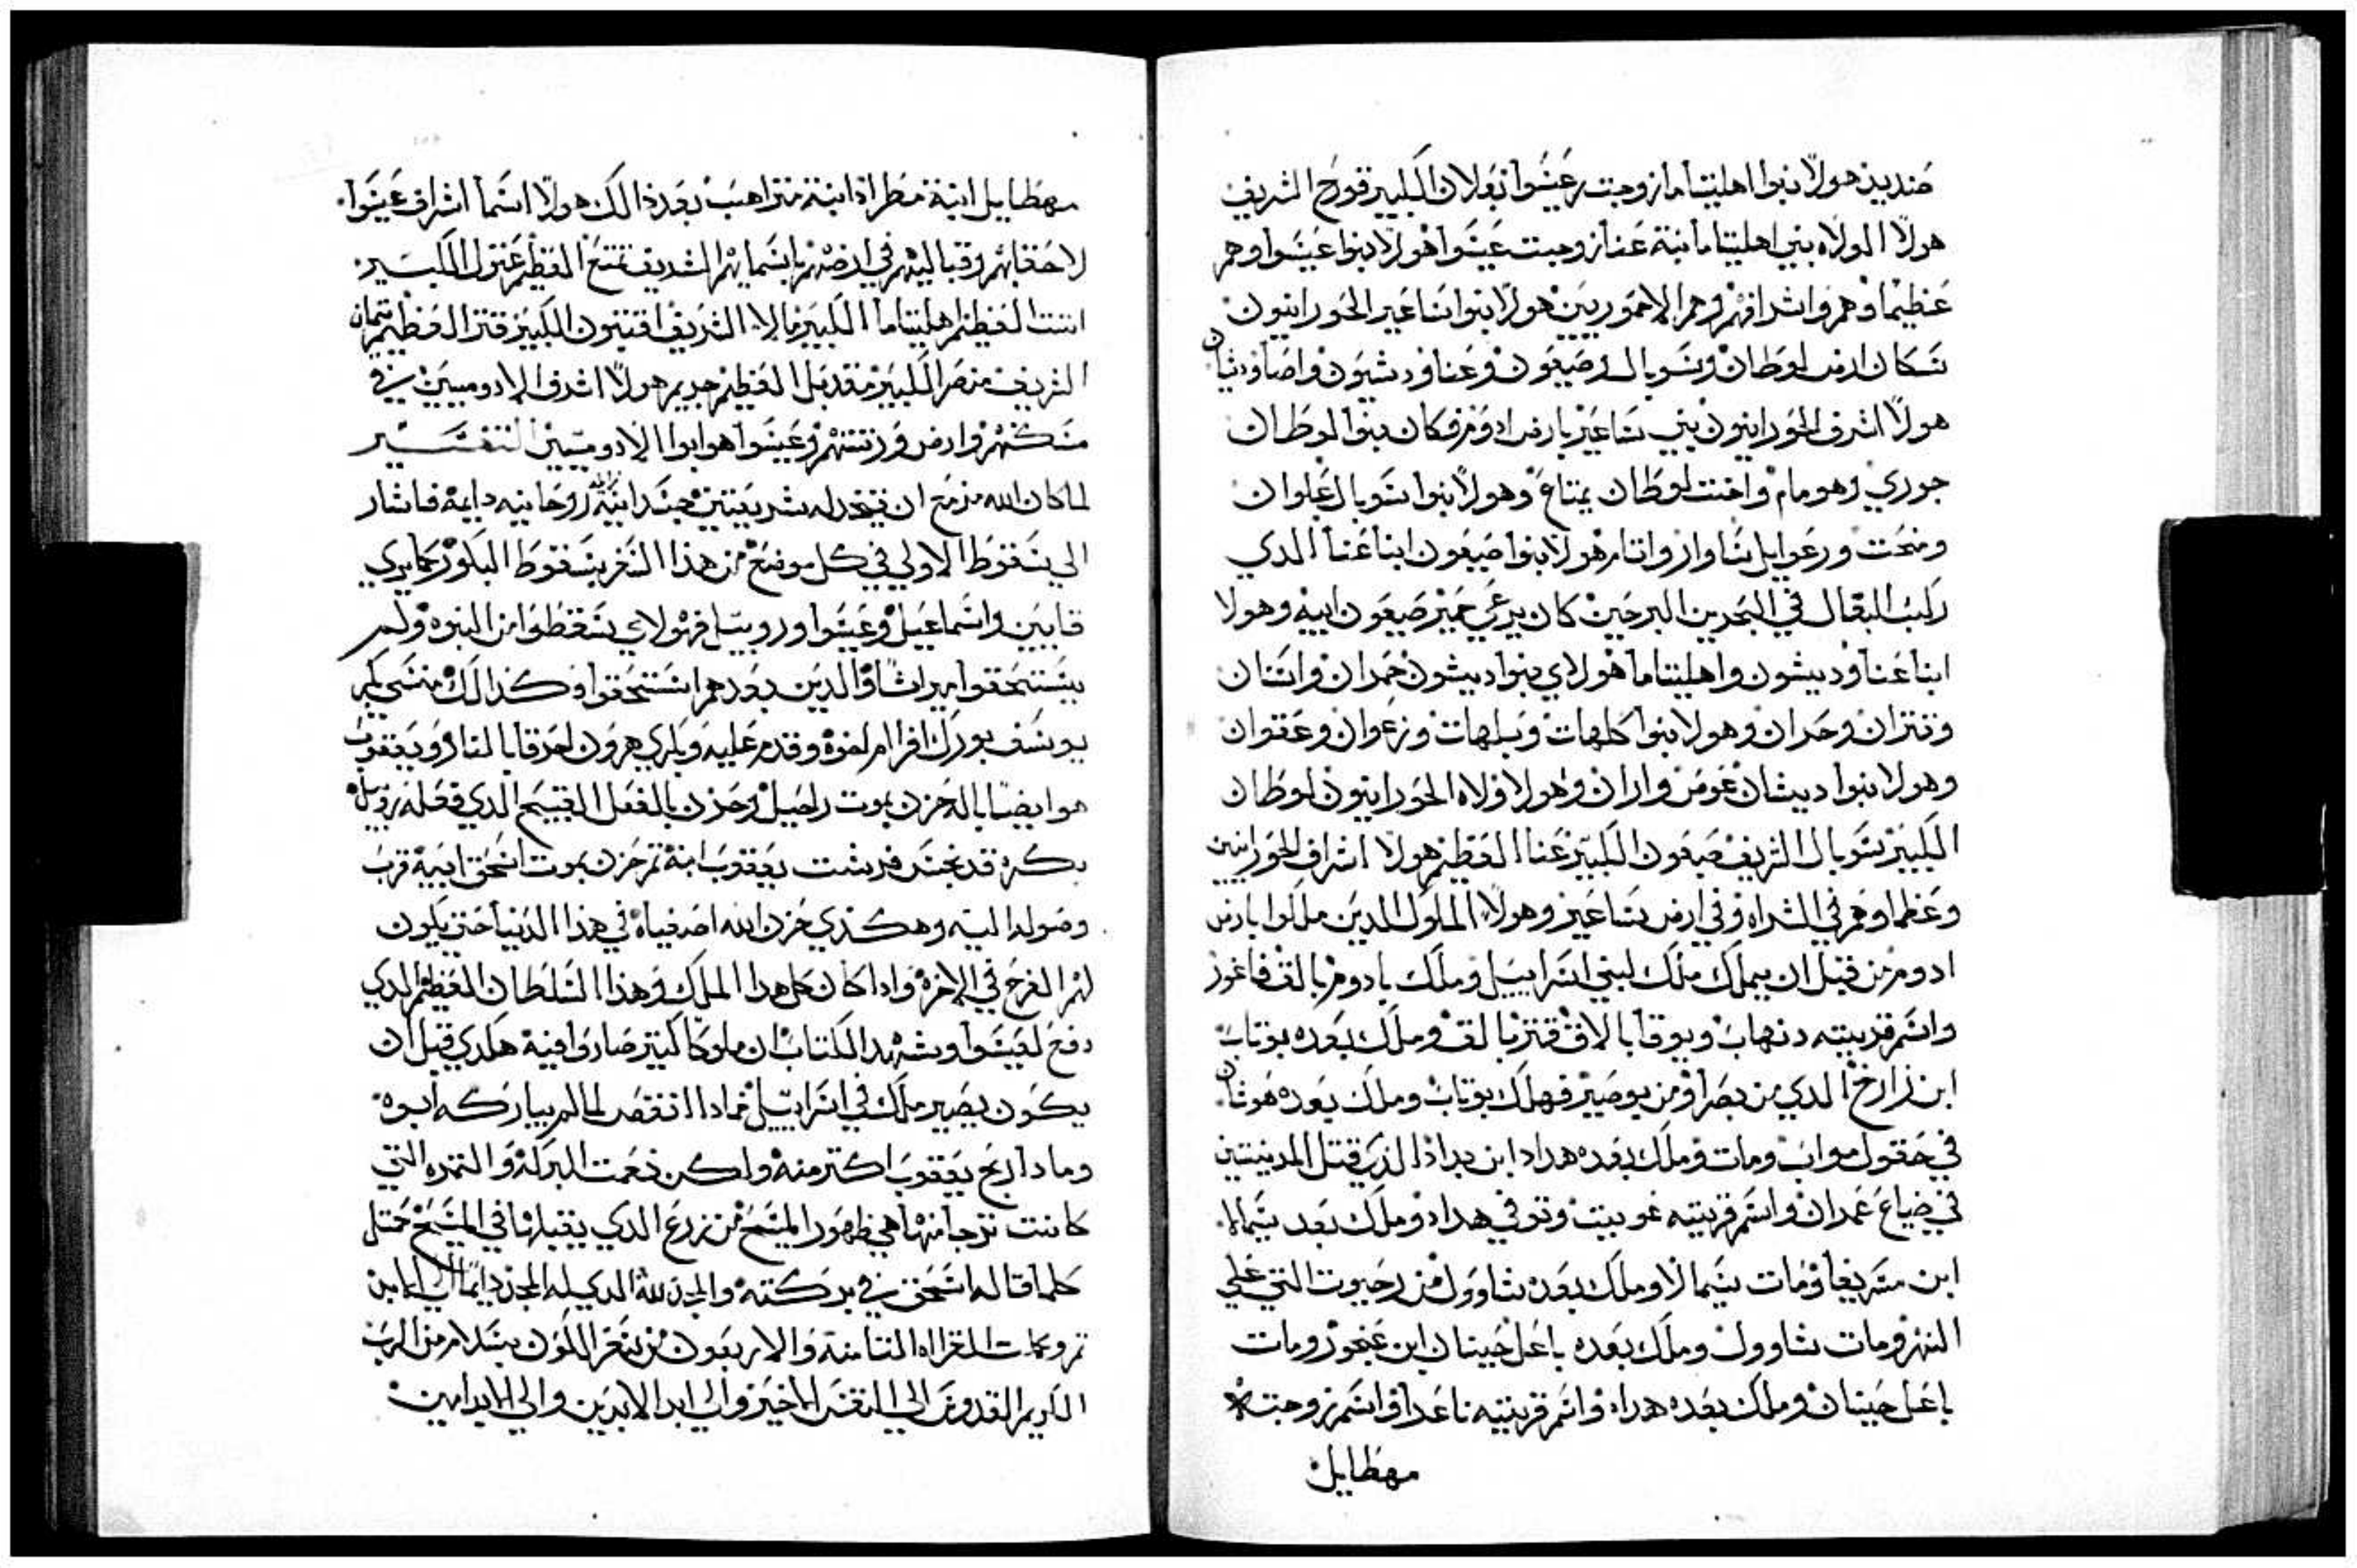 صنديد هولا بنوا اهليتاما زوجت عيسوا بعلان الكبير قورح الشريف
هولا الولاه بني اهليتاما ابنة عنا زوجت عيسوا هولا بنوا عيسوا وهم
عظيما وهم واشرافهم وهم الاحموريين هولا بنوا ساعير الحورانيون
سكان ارض لوطان وسوبال وصبعون وعنا وديشون واصاوديشان
هولا اشرف الحورانيون بني ساعير بارض ادوم فكان بنوا لوطان
جوري وهومام واخت لوطان يمتاع وهولا بنوا سوبال علوان
ومنحت ورعوايل شاوا واتام هولا بنوا صبعون ابنا عنا الدي
ركب البغال في البحرين البر حين كان يرعي حمير صبعون ابيه وهولا
ابنا عنا وديشون واهليتاما هولاي بنوا ديشون حمدان واسان
وتتران وحران وهولا بنوا كلهات وبلهات وزعوان وعقوان
وهولا بنوا ديشان عوص واران وهولا ولاه الحورانيون لوطان
الكبير سوبال الشريف صبعون الكبير عنا العظيم هولا اشراف الحورانيين
وعظما وهم في الشراه وفي ارض ساعير وهولا الملوك الدين ملكوا بارض
ادوم من قبل ان يملك ملك لبني اسراييل وملك بادوم بالق فاغور
واسم قريته دنهاب ويوقا بالاق قتر بالق وملك بعده بوتاب
ابن زارخ الدي من بصرا ومن بوصير فهلك بوتاب وملك بعده هوشان
في حقول مواب ومات وملك بعده هداد ابن بداد الذي قتل المدينتين
في ضياع عمدان واسم قريته غوبيت وتوفي هداد وملك بعد شمالا
ابن مسريقا ومات شمالا وملك بعده شاوول من رحبوت التي علي
النهر ومات شاوول وملك بعده باعل حينان ابن عنجور ومات
باعل حينان وملك بعده هداه واسم قريته ناعدا واسم زوجت
مهطايل
مهطايل ابنة مطراد ابنة متراهب بعد ذالك هولا اسما اشراف عيسوا
لاحقابهم وقبايلهم في ارضهم باسمايهم الشريف تمتع العظيم عنول الكبير
اتنت العظيم اهليتاما الكبير مالا الشريف اقنيون الكبير قتر العظيم تيمان
الشريف منصر الكبير مقديل العظيم جديم هولا اشرف الادوميين في
مسكنهم وارض ورثتهم وعيسوا هوابوا الادوميين التفسير
لما كان الله مزمع ان يتخد له شريعتين جسدانية وروحانيه دايمة فاشار
الي سقوط الاولي في كل موضع من هذا السفر بسقوط البكور كما يري
قايين واسماعيل وعيسوا وروبيل فهولاي سقطوا من البنوه ولم
يستحقوا ميراثا والدين بعدهم استحقوا وكذالك منسي بكر
يوسف بورك افرام اخوه وقدم عليه ويلري هرون احرقا بالنار ويعقوب
هو ايضا باله حزن بموت راحيل وحزن بالفعل القبيح الدي فعله روبيل
بكره قد نجس فرشت يعقوب ابنه تم حزن بموت اسحق ابيه قرب
وصوله اليه وهكدي حزن الله اصفياه في هذا الدنيا حتي يكون
لهم الفرح في الاخره وادا كان كل هدا الملك وهذا السلطان العظيم الدي
دفع لعيسوا ويشهد الكتاب ان ملوكا كتير صاروا فيه هكدي قبل ان
يكون يصير ملك في اسراييل فمادا انتقص لما لم يباركه ابوه
ومادا ربح يعقوب اكتر منه ولكن نعمت البركة والتمره التي
كانت ترجا منها هي ظهور المسيح من زرع الدي يقبلها في المسيح ختل
كلما قاله اسحق في بركته والمجد لله الدي له المجد دايما الي ابد
تم وكملت القراه التامنه والاربعون من سفر الكون بسلام من الرب
الكريم القدوس الي النفس الاخير والي ابد الابدين والي الابد امين